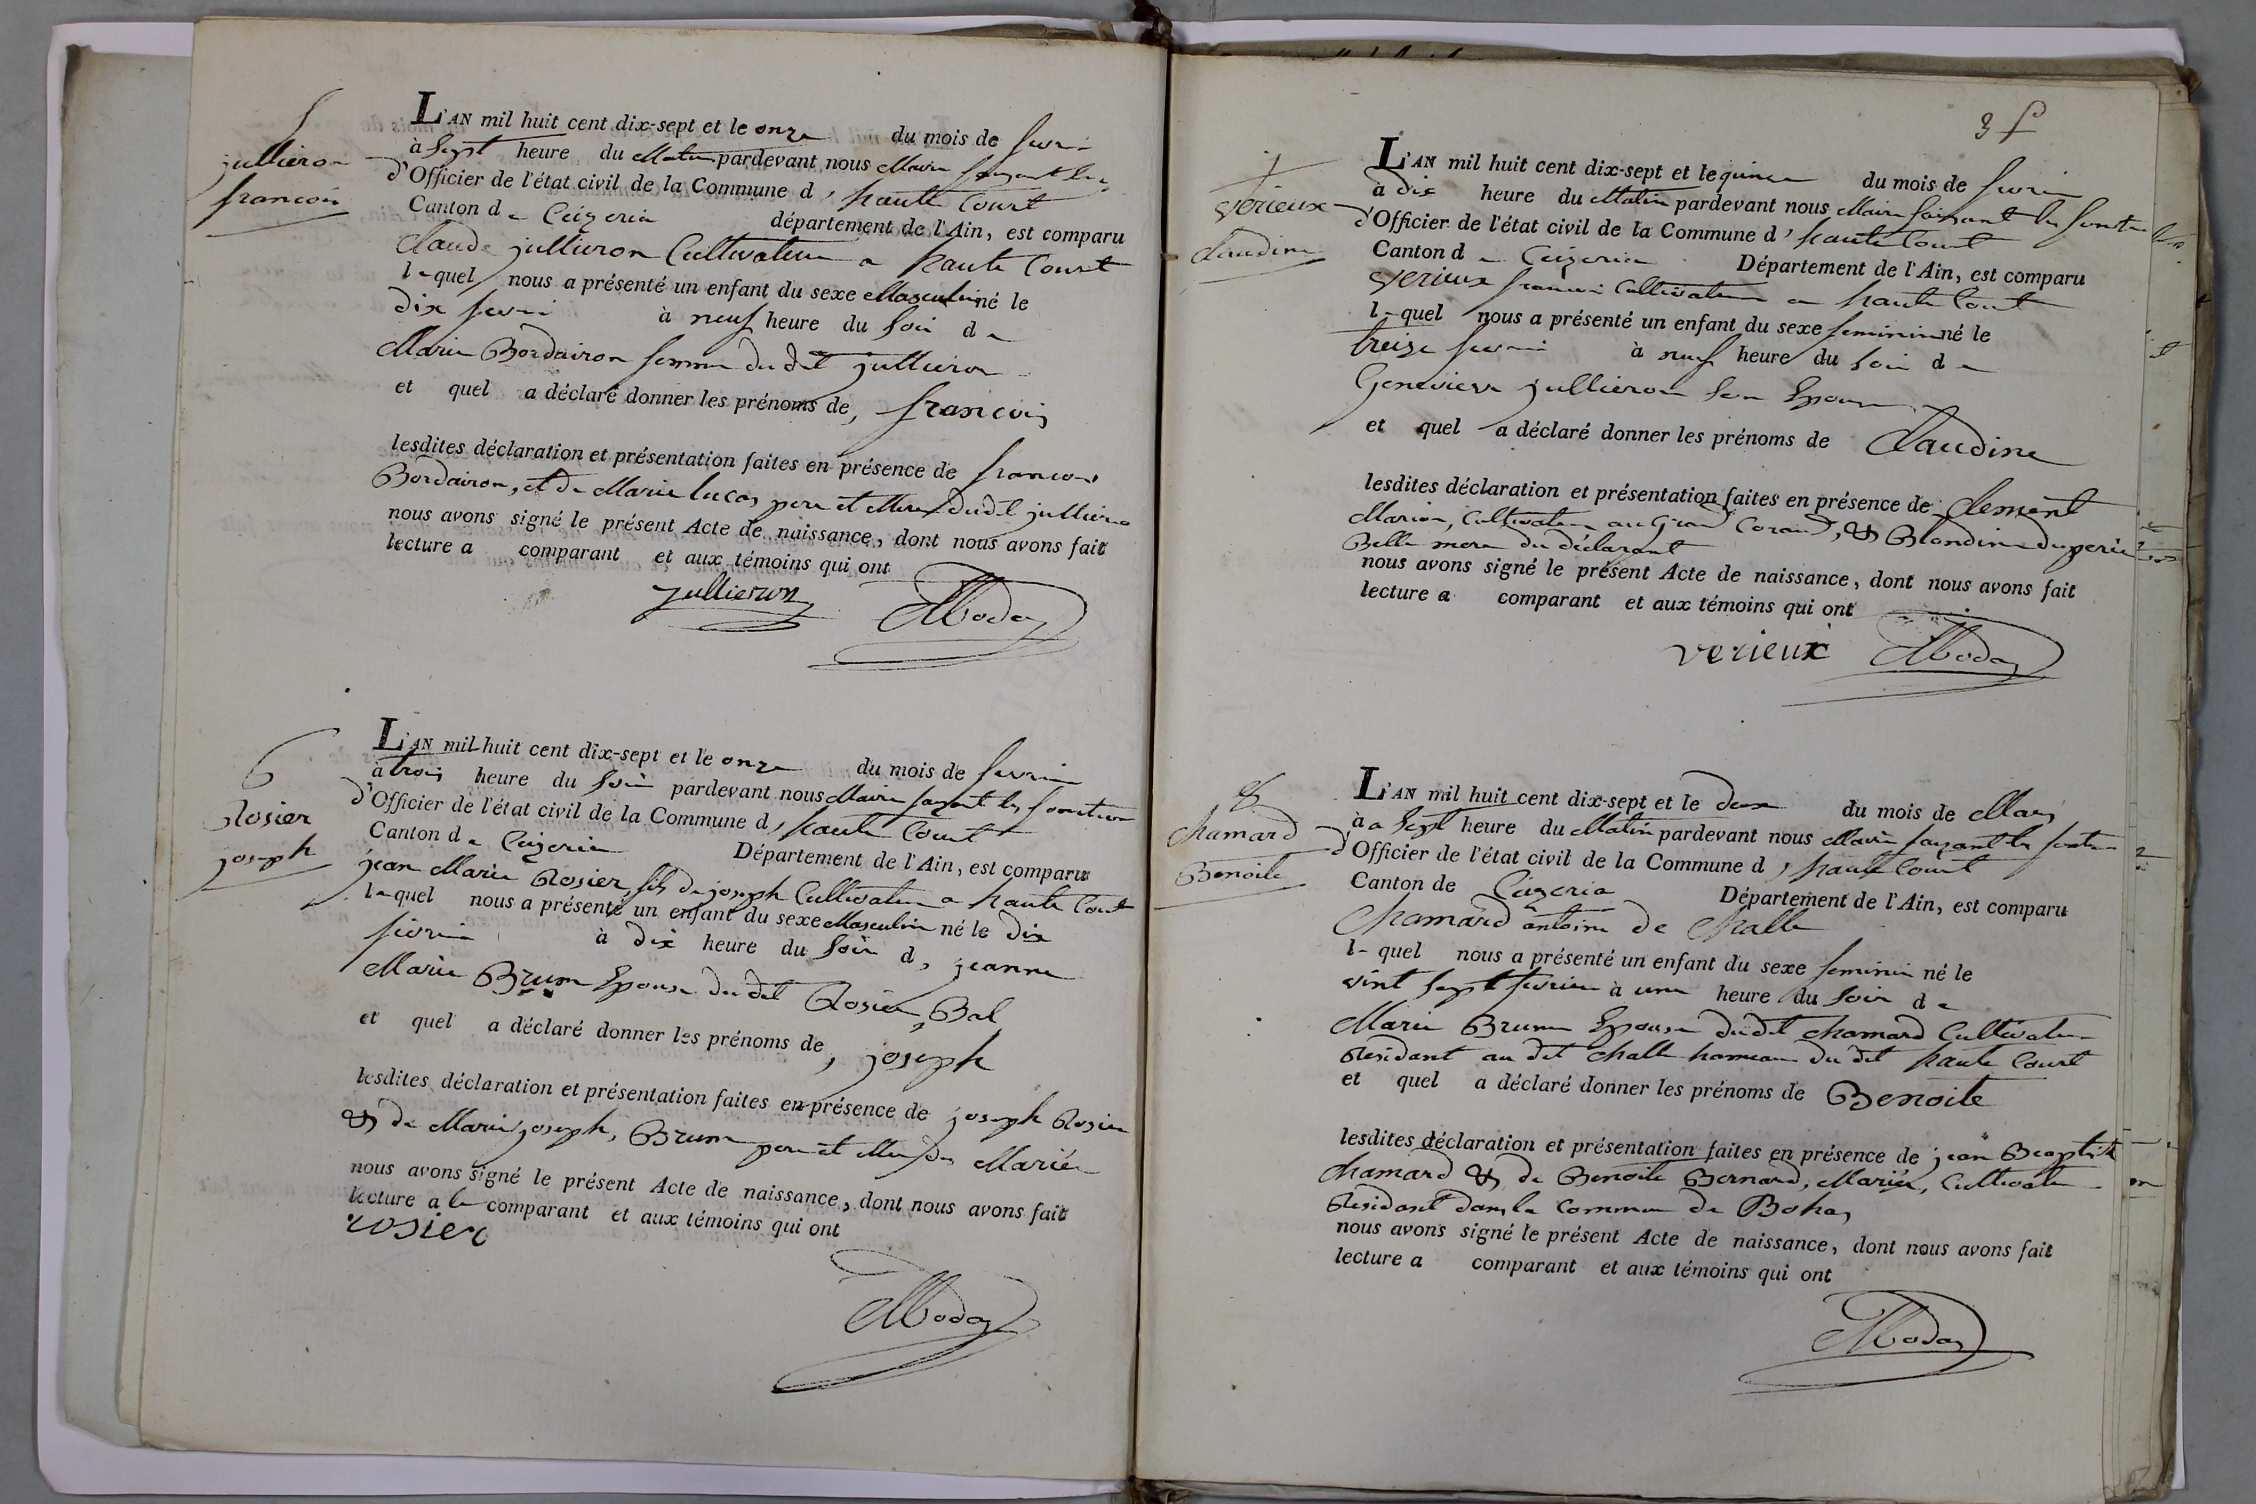 5
jullieron
francois
L'AN mil huit cent dix-sept et le onze du mois de fevrier
à Sept heure du Matin pardevant nous Maire faisant les
d'Officier de l'état civil de la Commune d, haute Court
Canton de Ceizeria département de l'Ain, est comparu
Claude jullieron Cultivateur a haute Court
lequel nous a présenté un enfant du sexe Masculin né le
dix fevrier à neuf heure du Soir de
Marie Bordairon femme du dit jullieron
et quel a déclaré donner les prénoms de, francois
lesdites déclaration et présentation faites en présence de francois
Bordairon, et de Marie lucas pere et Mere dudit jullieron
nous avons signé le présent Acte de naissance, dont nous avons fait
lecture a comparant et aux témoins qui ont
jullieron
6
Rosier
joseph
L'AN mil huit cent dix-sept et le onze du mois de fevrier
à trois heure du Soir pardevant nous Maire faisant les fonction
d'Officier de l'état civil de la Commune d, haute Court
Canton de Ceizeria Département de l'Ain, est comparu
jean Marie Rosier, fils de joseph Cultivateur a haute Court
lequel nous a présenté un enfant du sexe Masculin né le dix
fevrier à dix heure du Soir d, jeanne
Marie Brun Epouse du dit Rosier, Bal
et quel a déclaré donner les prénoms de, joseph
lesdites déclaration et présentation faites en présence de joseph Rosier
& de Marie joseph, Brun pere et Mere des Mariés
nous avons signé le présent Acte de naissance, dont nous avons fait
lecture a le comparant et aux témoins qui ont
rosier
3 f
7
Verieux
Claudine
L'AN mil huit cent dix-sept et le quinze du mois de fevrier
à dix heure du Matin pardevant nous Maire faisant les fonction
d'Officier de l'état civil de la Commune d, haute Court
Canton de Ceizeria Département de l'Ain, est comparu
Verieux francois Cultivateur a haute Court
lequel nous a présenté un enfant du sexe feminin né le
treize fevrier à neuf heure du Soir de
Genevieve jullieron Son Epouse
et quel a déclaré donner les prénoms de Claudine
lesdites déclaration et présentation faites en présence de Clement
Marion, Cultivateur au Grand Corand, & Blondine duperier
Belle mere du déclarant
nous avons signé le présent Acte de naissance, dont nous avons fait
lecture a comparant et aux témoins qui ont
verieux
8
Chamard
Benoite
L'AN mil huit cent dix-sept et le deux du mois de Mars
à a Sept heure du Matin pardevant nous Maire faisant les fonction
d'Officier de l'état civil de la Commune d, haute Court
Canton de Ceizeria Département de l'Ain, est comparu
Chamard antoine de Challe
lequel nous a présenté un enfant du sexe feminin né le
vint Sept fevrier à une heure du Soir de
Marie Brunn Epouse du dit Chamard Cultivateur
Residant au dit Challe hameau du dit haute Court
et quel a déclaré donner les prénoms de Benoite
lesdites déclaration et présentation faites en présence de jean Baptiste
Chamard & de Benoite Bernard, Mariés, Cultivateur
Residant dans la Commune de Bohas
nous avons signé le présent Acte de naissance, dont nous avons fait
lecture a comparant et aux témoins qui ont